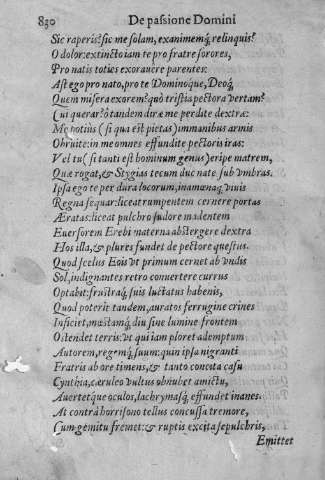 830 De passione Domini
Sic raperis? sic me solam, exanimemq́; relinquis?
O dolor: extincto iam te pro fratre sorores,
Pro natis toties exorauere parentes:
Ast ego pro nato, pro te Dominoque, Deoq́;
Quem misera exorem? quò tristia pectora vertam?
Cui querar? ô tandem diræ me perdite dextræ:
Me potius (si qua est pietas) immanibus armis
Obruite: in me omnes effundite pectoris iras:
Vel tu (si tanti est hominum genus) eripe matrem,
Quæ rogat, & Stygias tecum duc nate sub vmbras.
Ipsa ego te per dura locorum, inamœnaq́; viuis
Regna sequar: liceat rumpentem cernere portas
Æratas: liceat pulchro sudore madentem
Euersorem Erebi materna abstergere dextra
Hos illa, & plures fundet de pectore questus.
Quod scelus Eois vt primum cernet ab vndis
Sol, indignantes retro conuertere currus
Optabit: frustraq́; suis luctatus habenis,
Quod poterit tandem, auratos ferrugine crines
Inficiet, mæstamq́; diu sine lumine frontem
Ostendet terris: vt qui iam ploret ademptum
Autorem, regemq́; suum: quin ipsa nigranti
Fratris ab ore timens, & tanto concita casu
Cynthia, cæruleo vultus obnubet amictu,
Auertetque oculos, lachrymasq́; effundet inanes.
At contrà horrisono tellus concussa tremore,
Cum gemitu fremet: & ruptis excita sepulchris,
Emittet